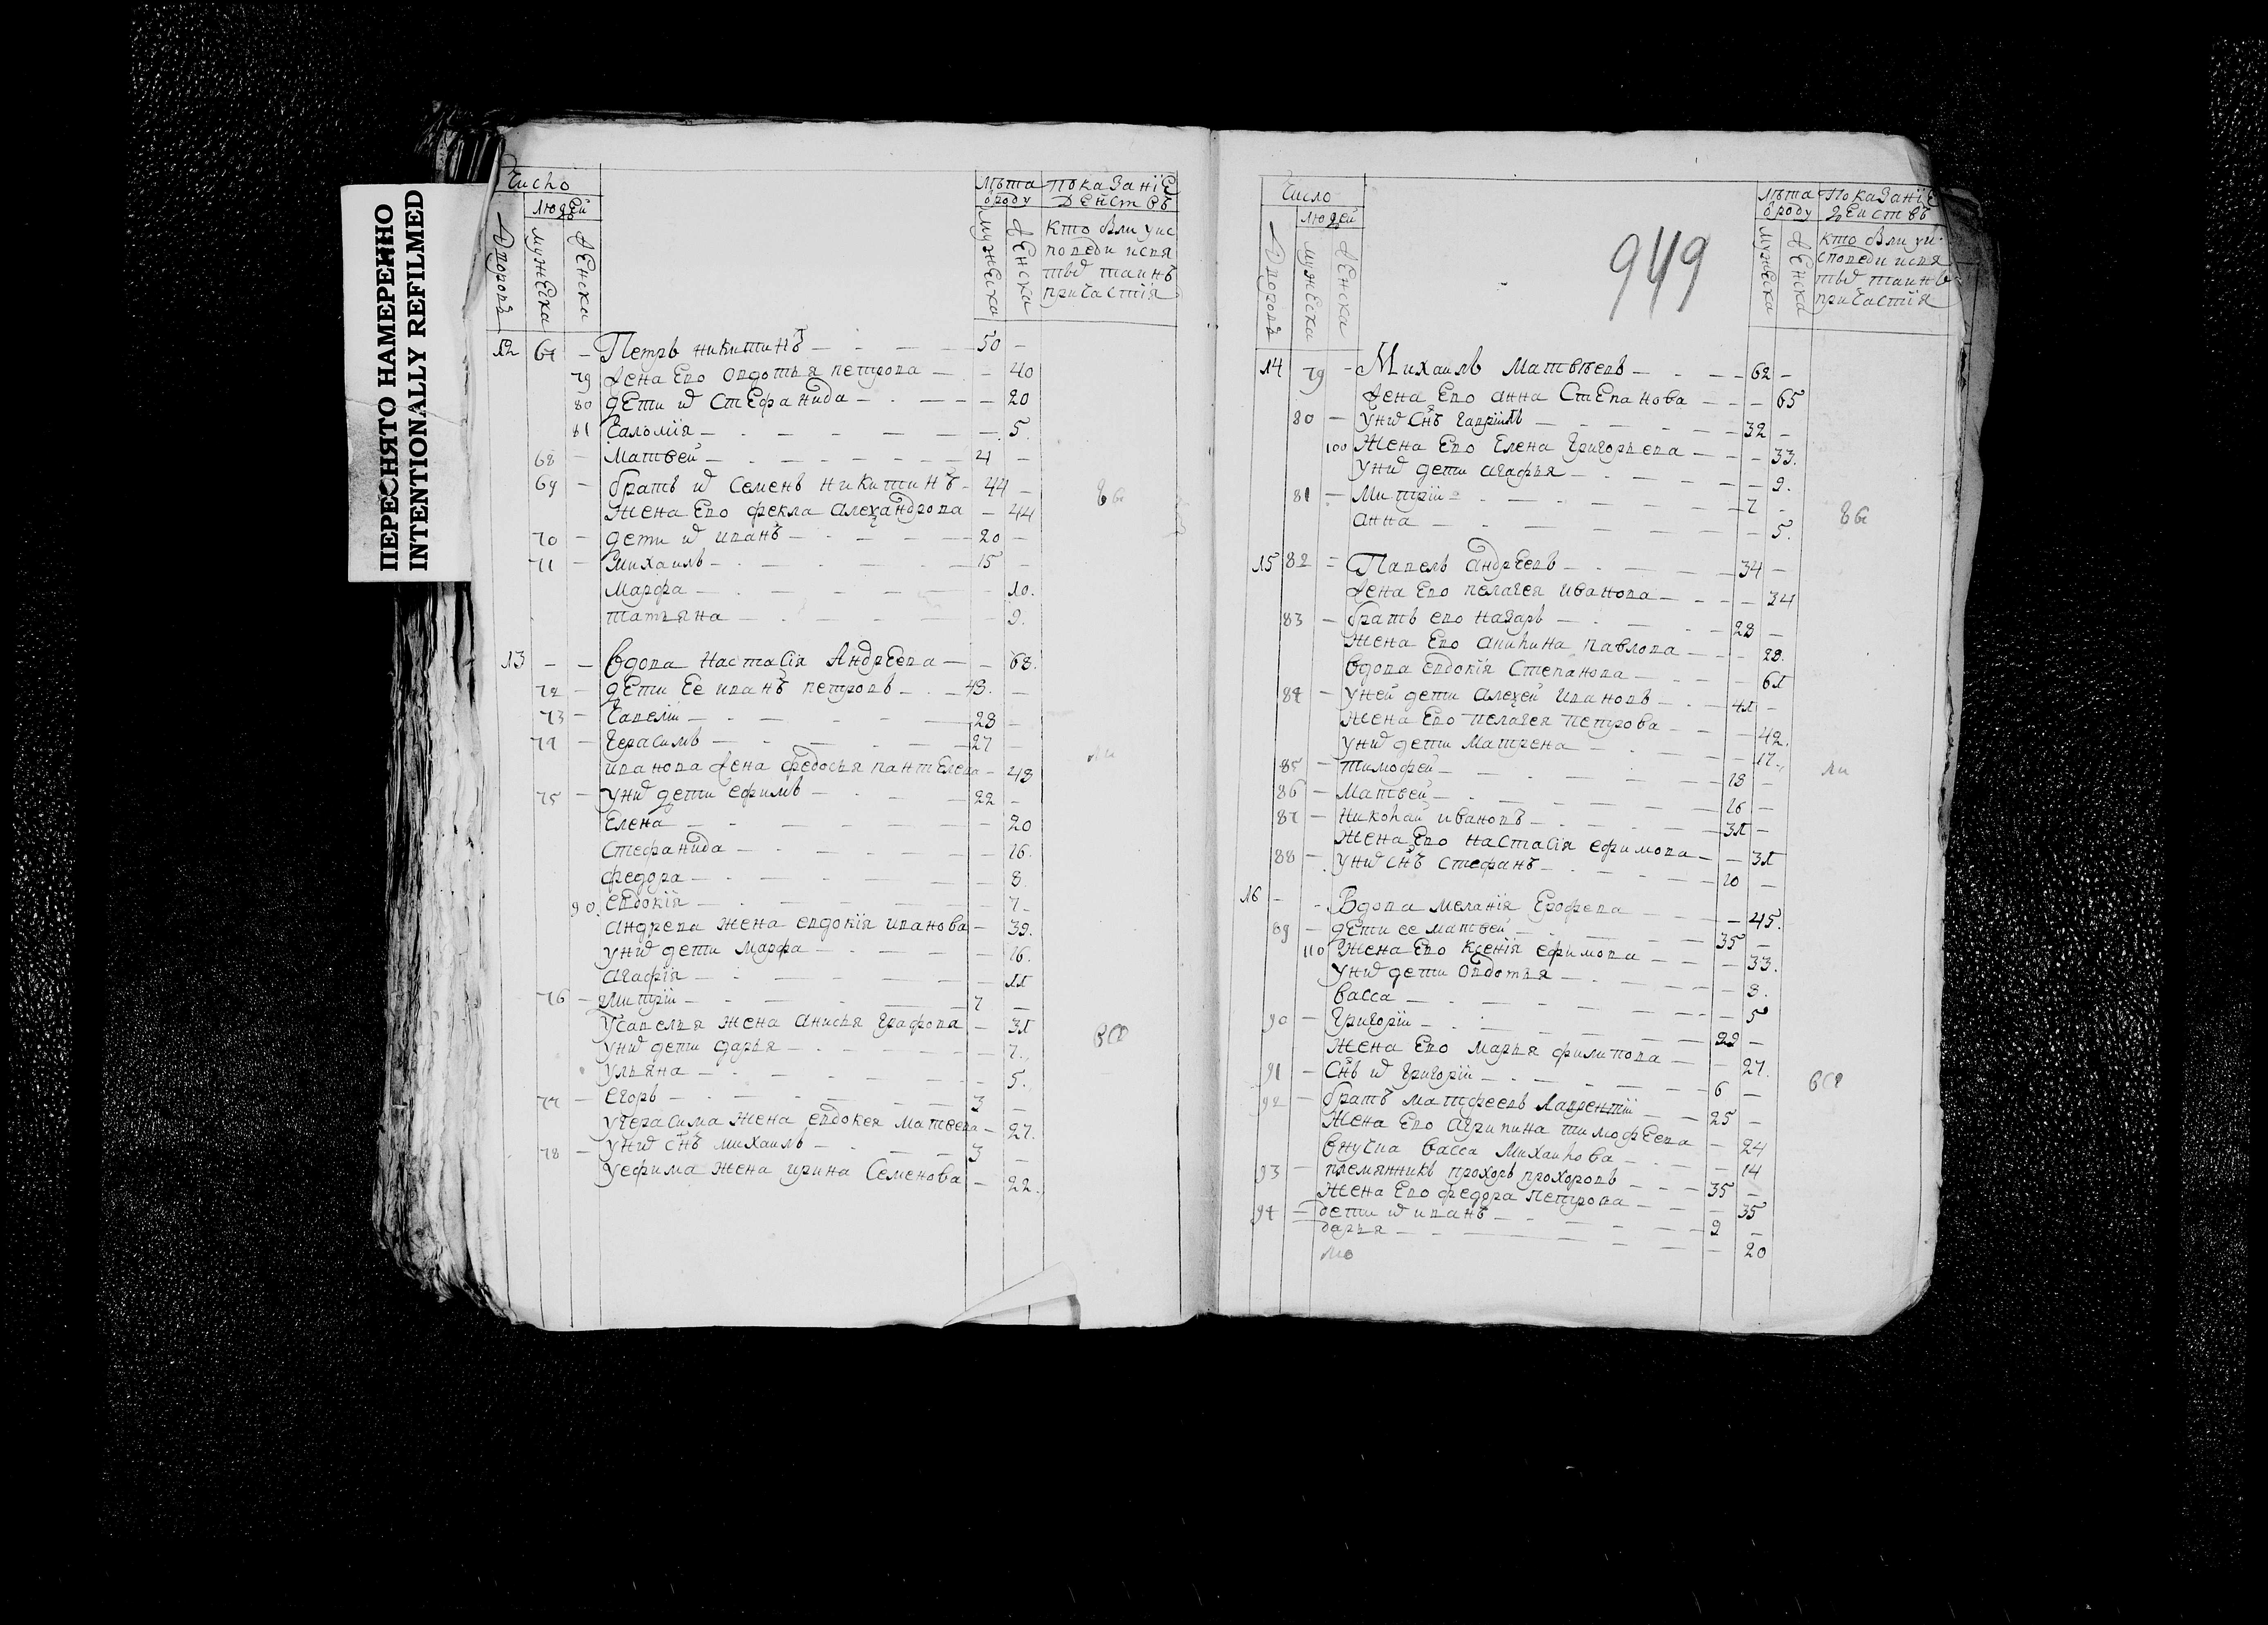 ПЕРЕСНЯТО НАМЕРЕННО
INTENTIONALLY REFILMED
Число
людей
Дворовъ
мужеска
женска
Лѣта
ѿ роду
мужеска
женска
показаніе
действъ
кто были у ис
поведи и свя
тыхъ таинъ
причастія
12 67 – Петръ никитинъ – 50 –
79 жена ево овдотья петрова – 40
80 дети их Стефанида – 20
81 Саломія – 5.
68 – Матвей – 4 –
69 – братъ их Семенъ никитинъ – 44 –
жена ево фекла александрова – 44
70 – дети их иванъ – 20 –
71 – михаилъ – 15 –
марфа – 10.
татьяна – 9.
13 – – вдова Настасія Андреева – 68.
72 – дети ее иванъ петровъ – 48. –
73 – Савелій – 28 –
74 – Герасимъ – 27 –
иванова жена федосья пантелева – 48
75 – у них дети ефимъ – 22 –
елена – 20
стефанида – 16.
федора – 8
90. евдокія – 7 –
андрева жена евдокія иванова – 39.
у них дети марфа – 16.
агафія – 11
76 – Митрій – 7 –
у савелья жена анисья Графова – 31
у них дети дарья – 7.
ульяна – 5.
77 – егоръ – 3 –
у герасима жена евдокея матвева – 27.
78 – у них снъ михаилъ – 3 –
у ефима жена ирина Семенова – 22.
949
Число
людей
Дворовъ
мужеска
женска
Лѣта
ѿ роду
мужеска
женска
Показаніе
действъ
кто были у и
споведи и свя
тыхъ таинъ
причастія
14 79 – Михаилъ Матвѣевъ – 62 –
жена ево анна Степанова – 65
80 – у них снъ Гаврилъ – 32 –
100 жена ево Елена Григорьева – 33.
у них дети агафья – 9.
81 – Митрій – 7 –
анна – 5.
15 82 – Павелъ андреевъ – 34 –
жена ево пелагея иванова – 34
83 – братъ ево назаръ – 28 –
жена ево акилина павлова – 28.
вдова евдокія Степанова – 61
84 – у ней дети алексей ивановъ – 41 –
жена ево пелагея петрова – 42.
у них дети матрена – 17.
85 – тимофей – 18 –
86 – Матвей – 16 –
87 – Николай ивановъ – 31 –
жена ево настасія ефимова – 31
88 – у них снъ стефанъ – 10 –
16 – – Вдова меланія Ерофева – 45.
89 – дети ее матвей – 35 –
110 жена ево ксенія ефимова – 33.
у них дети овдотья – 8.
васса – 5
90 – григорій – 29 –
жена ево марья филипова – 27.
91 – снъ их григорій – 6 –
92 – братъ матфеевъ лаврентій – 25 –
жена ево агрипина тимофеева – 24
внучка васса михайлова – 14
93 – племянникъ прохоръ прохоровъ – 35 –
жена ево федора петрова – 35
94 – дети их иванъ – 9 –
дарья – 20